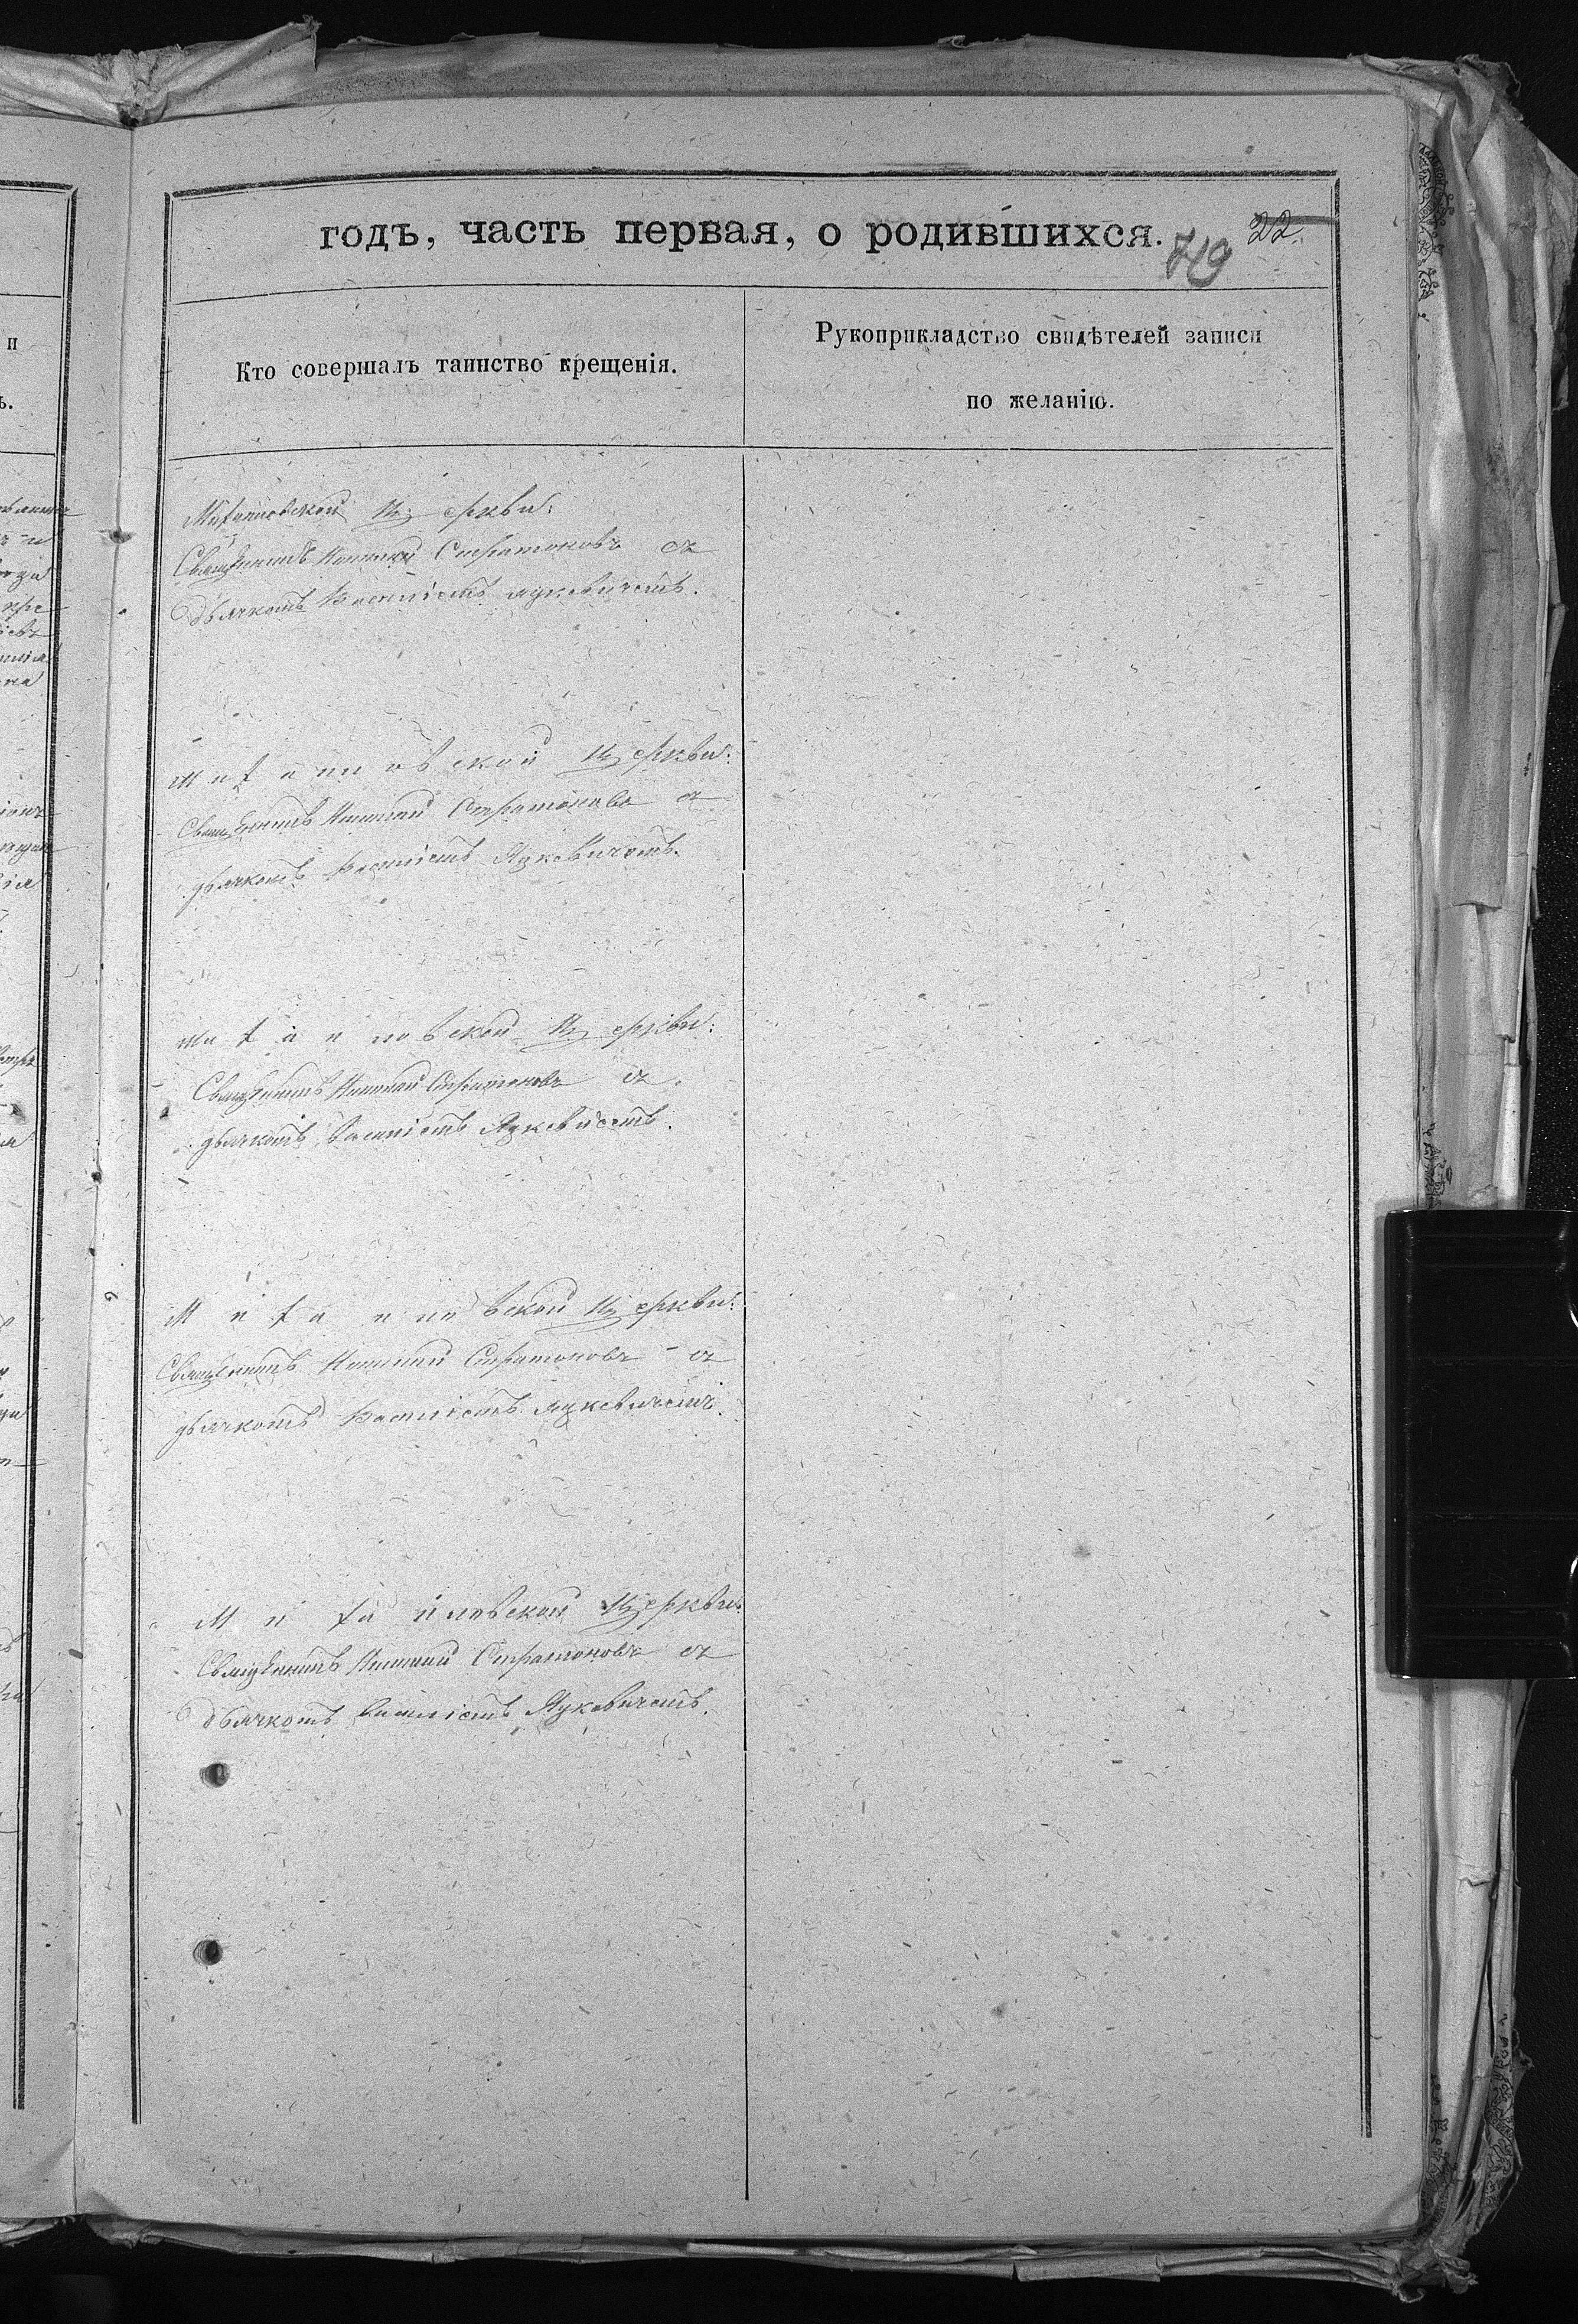 годъ, часть первая, о родившихся.
719 22.
Кто совершалъ таинство крещенія.
Рукоприкладство свидѣтелей записи
по желанію.
Михаиловской Церкви:
Священникъ Николай Стратоновъ съ
дьячкомъ Василіемъ Яцкевичемъ.
Михаиловской Церкви:
Священникъ Николай Стратоновъ съ
дьячкомъ Василіемъ Яцкевичемъ.
Михаиловской Церкви:
Священникъ Николай Стратоновъ съ
дьячкомъ Василіемъ Яцкевичемъ.
Михаиловской Церкви:
Священникъ Николай Стратоновъ съ
дьячкомъ Василіемъ Яцкевичемъ.
Михаиловской Церкви:
Священникъ Николай Стратоновъ съ
дьячкомъ Василіемъ Яцкевичемъ.